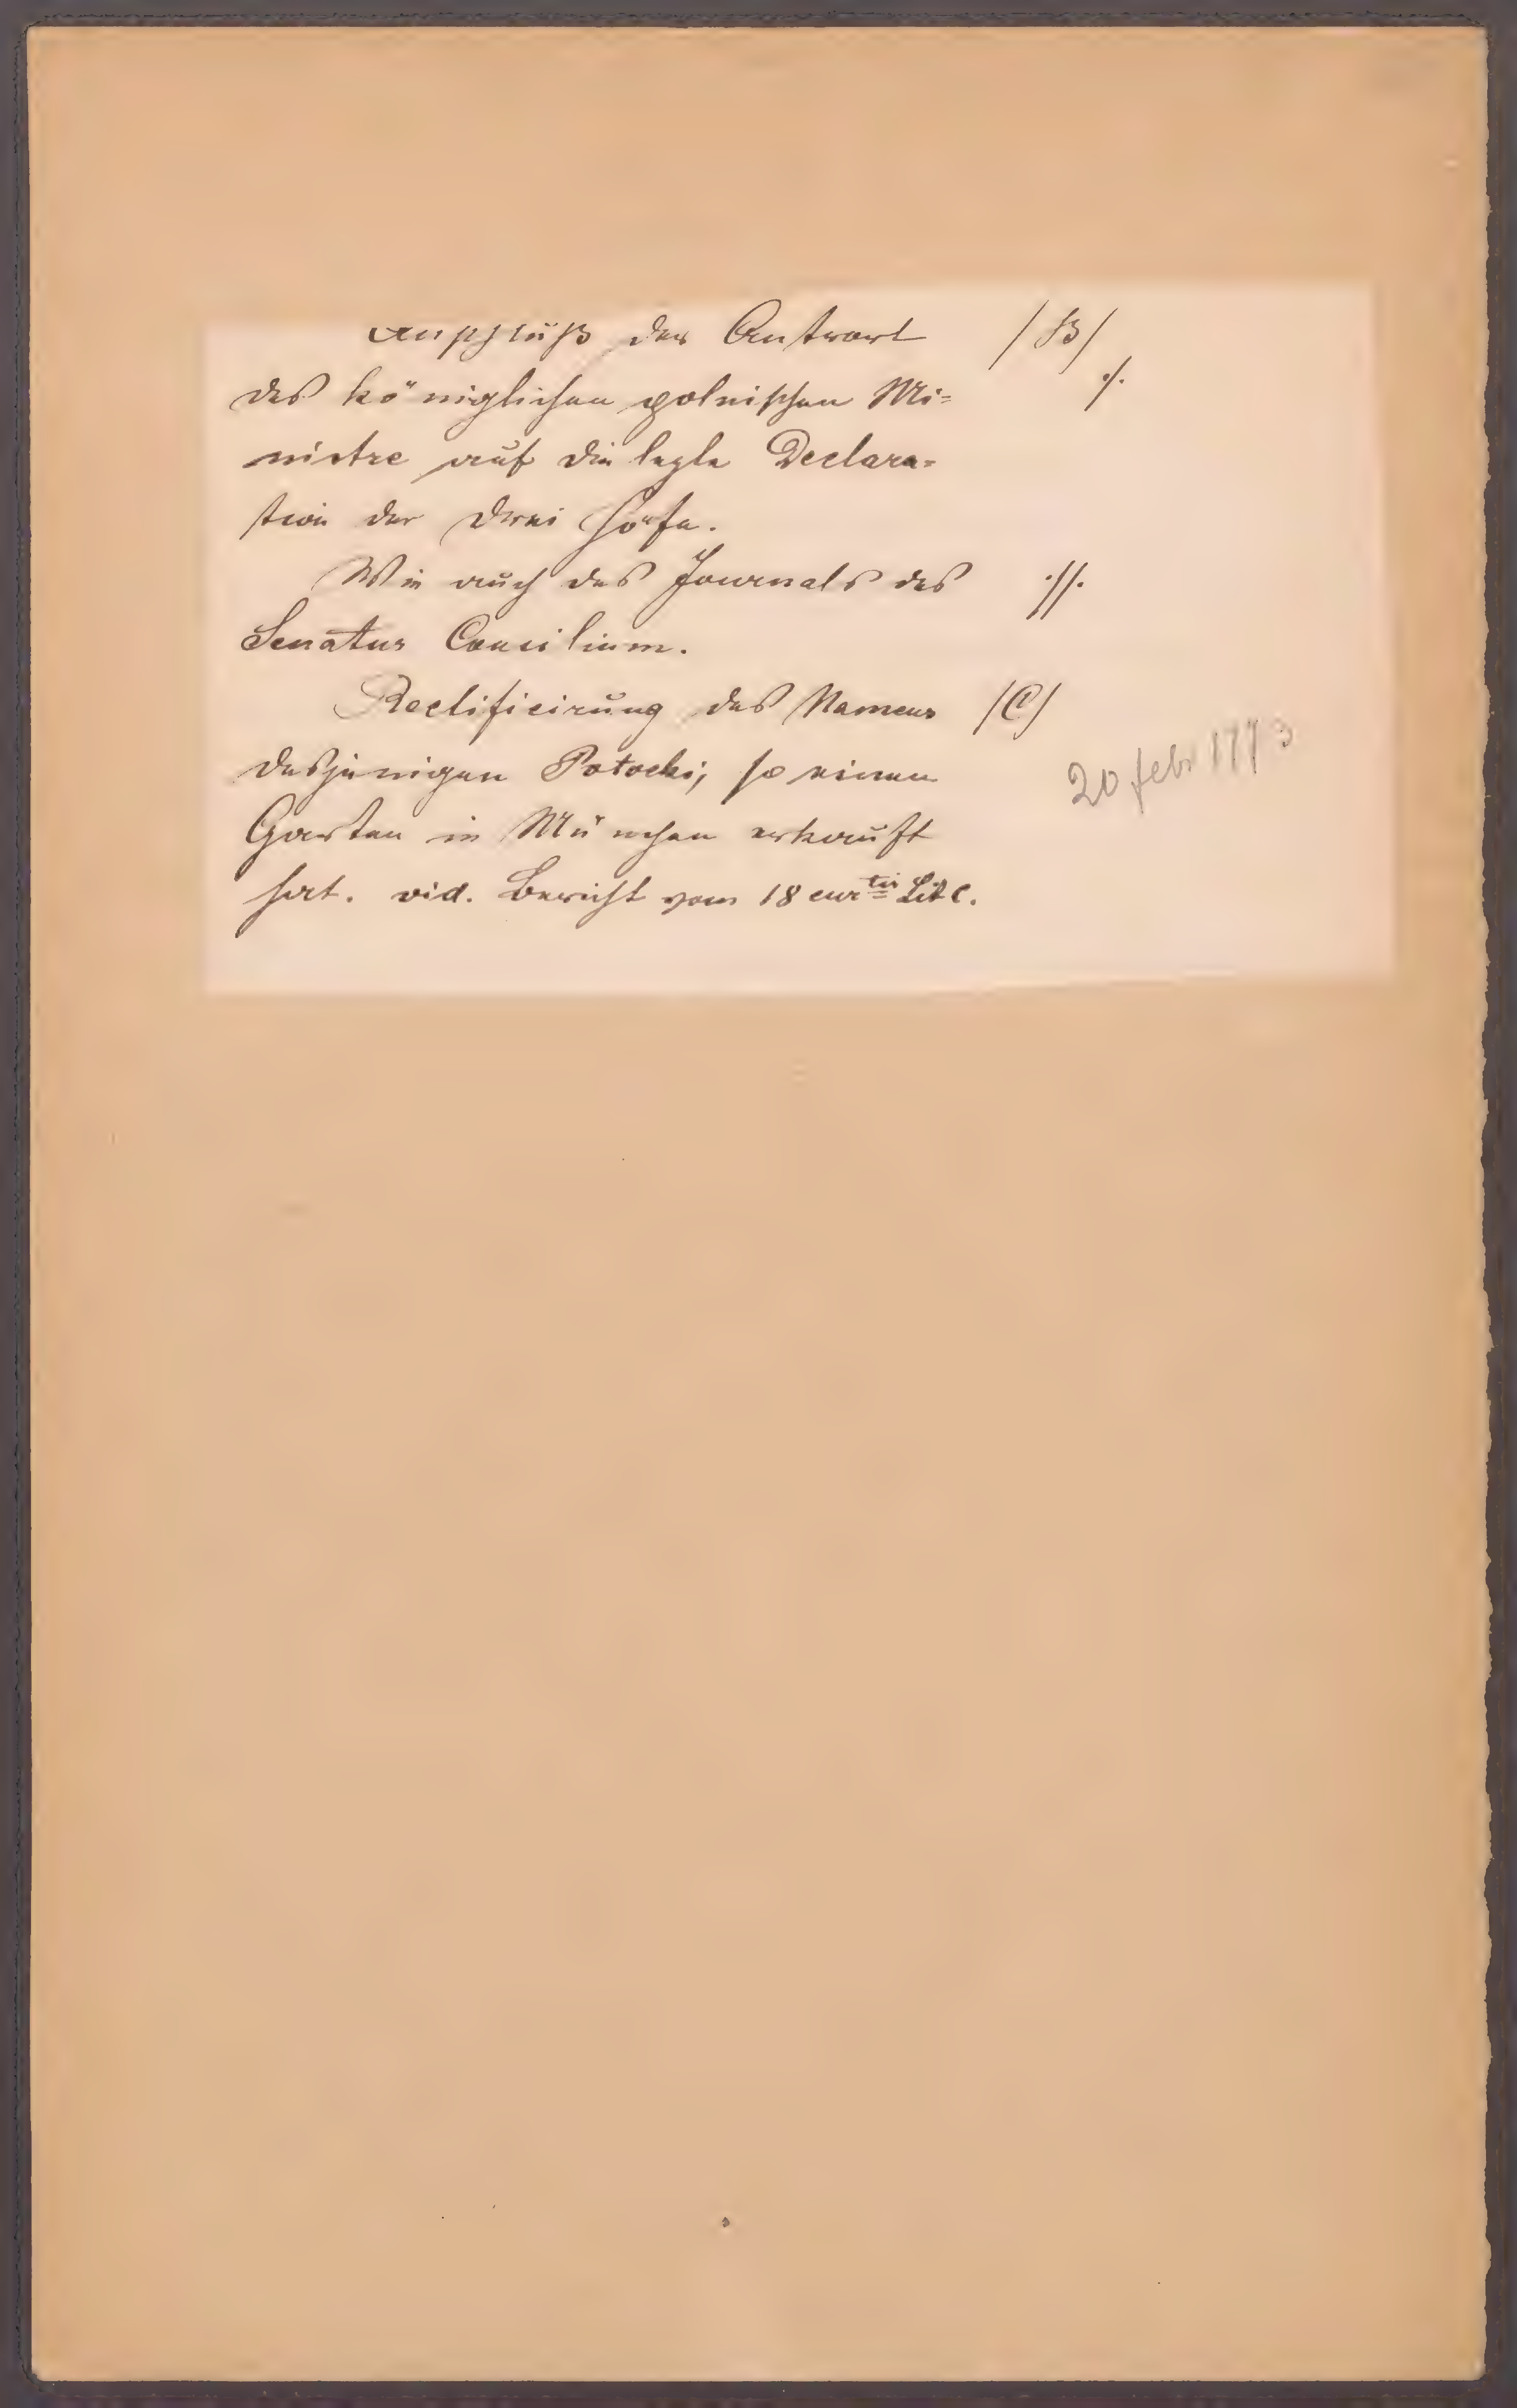 Anschluß der Antwort /B/
des königlichen polnischen Mi= ./.
nistre auf die letzte Declara=
tion der drei Höfe.
Wie auch des Journals des .//.
Senatus Consilium.
Rectificirung des Namens /C/
desjenigen Potocki, so einen
Garten in München erkauft
hat. vid. Bericht vom 18 cur tis Lit C.
20 febr 1773